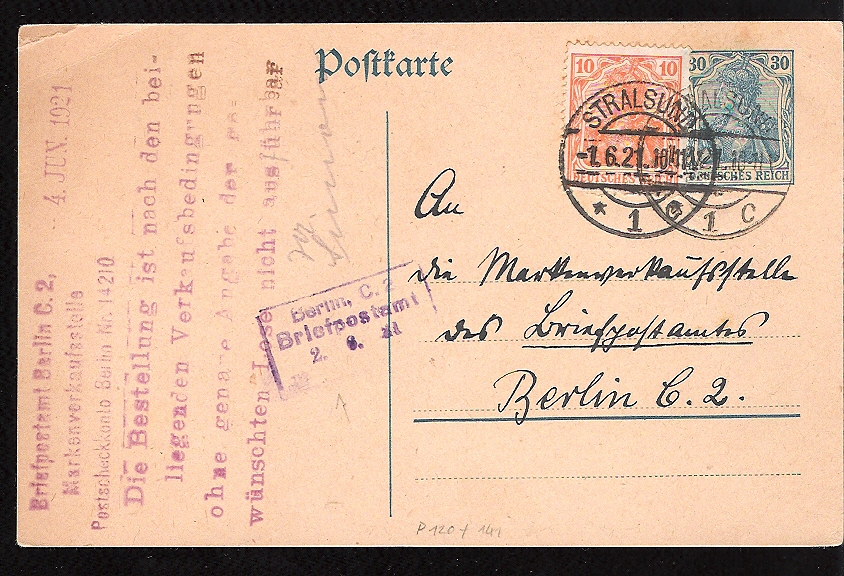 Postkarte
10 10
DEUTSCHES REICH
30 30
DEUTSCHES REICH
STRALSUND
-1.6.21.
* 1 c
1 C
An
die Markenverkaufsstelle
des Briefpostamtes
Berlin C. 2.
Berlin, C. 2
Briefpostamt
2. 6. 21
4. JUN. 1921
Briefpostamt Berlin C. 2,
Markenverkaufsstelle
Postscheckkonto Berlin Nr. 14210
Die Bestellung ist nach den bei-
liegenden Verkaufsbedingungen
ohne genaue Angabe der ge-
wünschten Lose nicht ausführbar
P 120 + 141